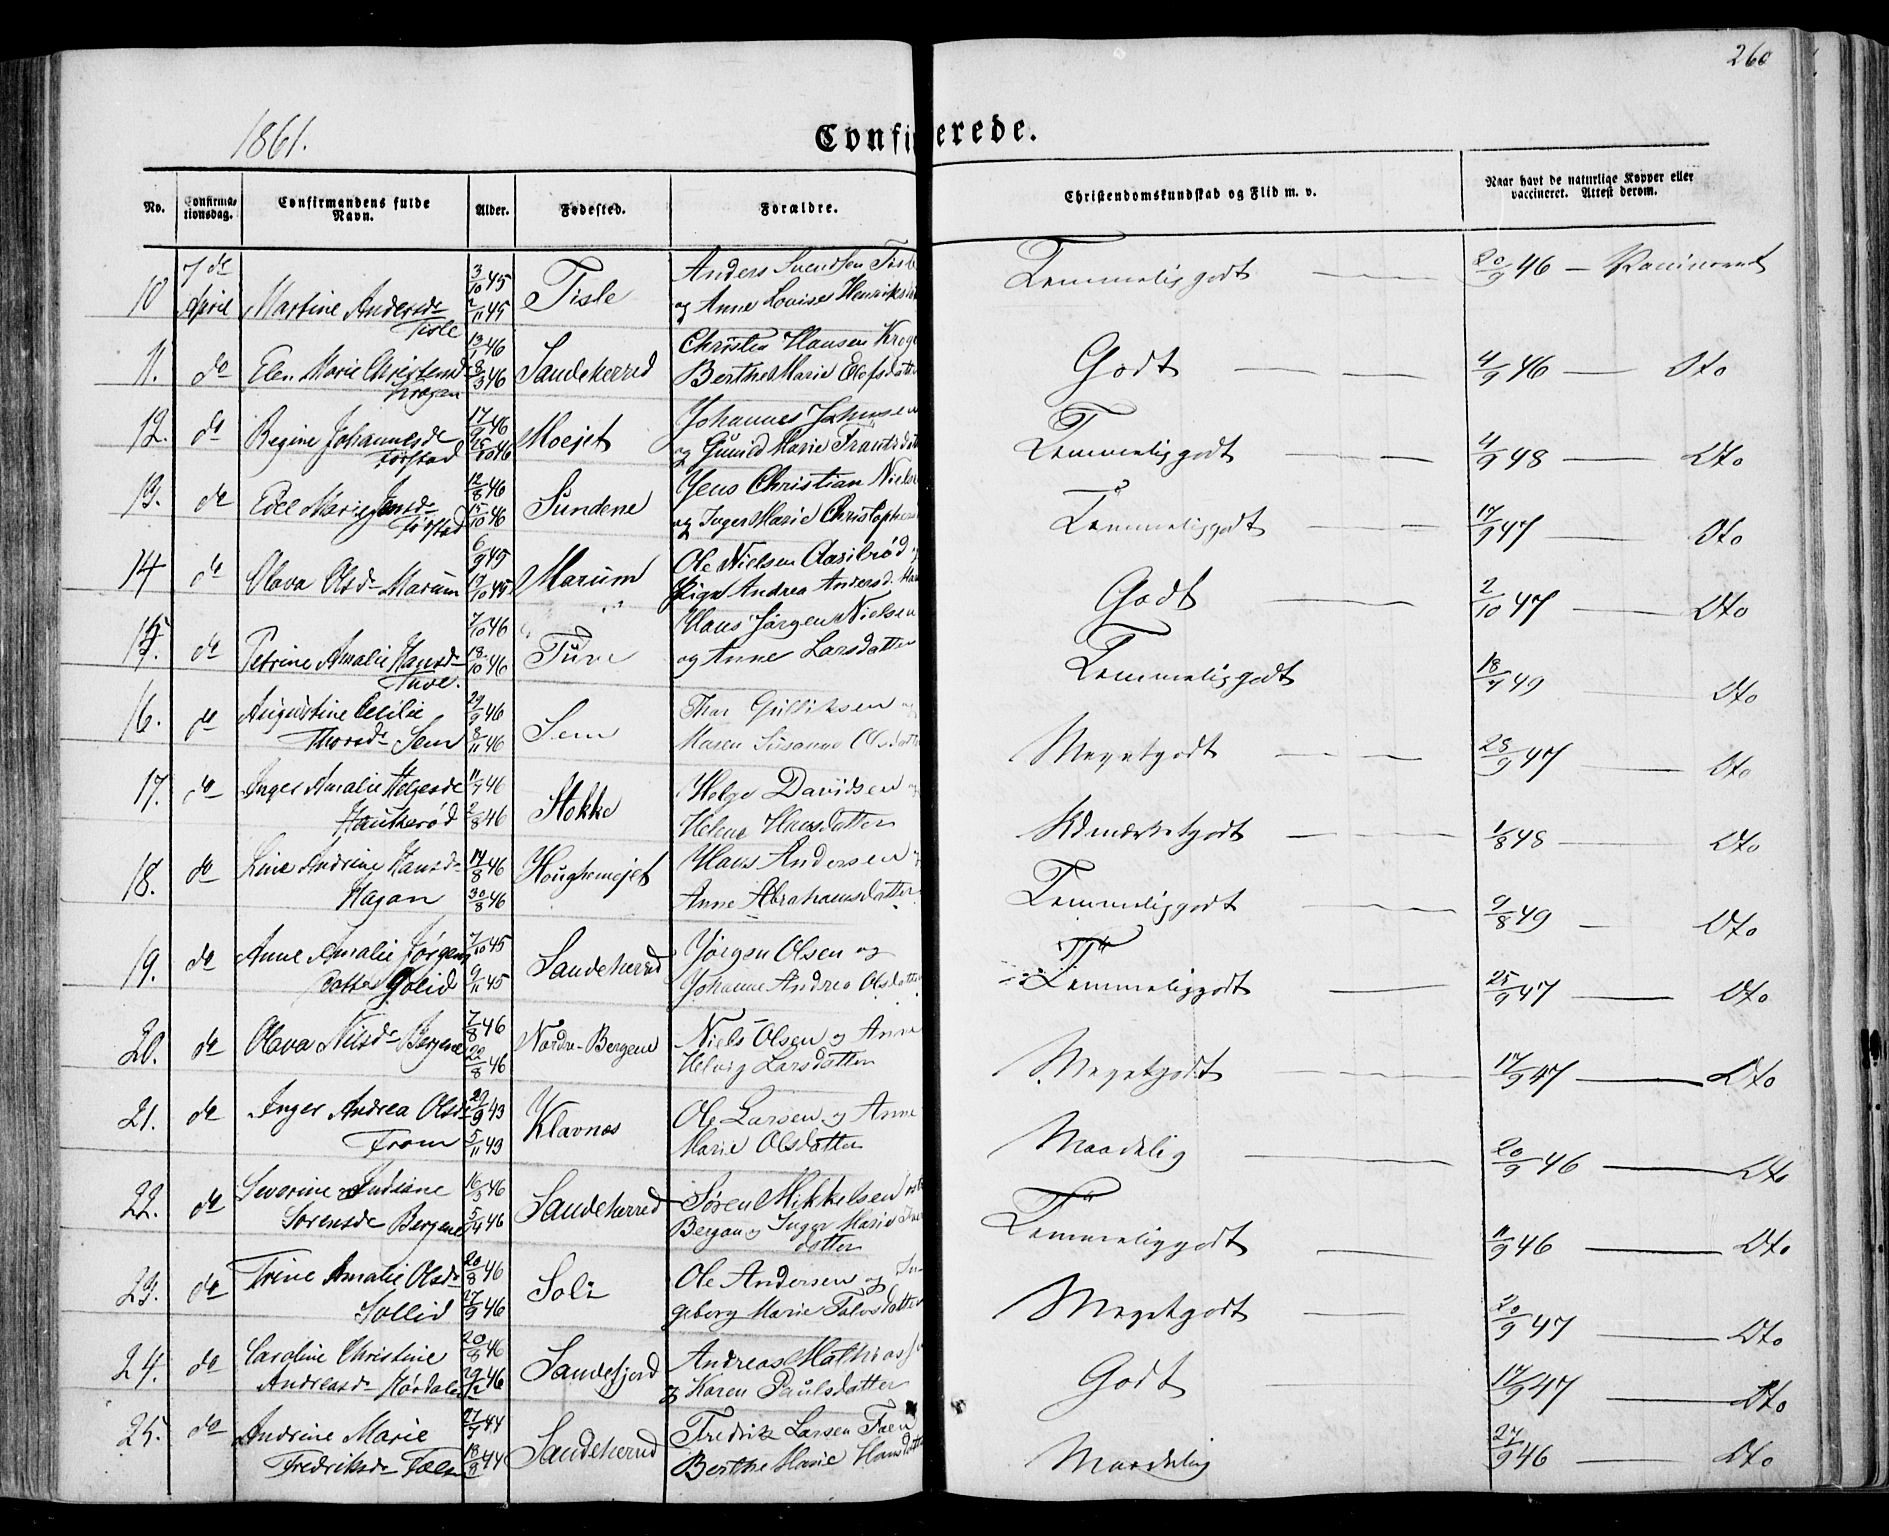 260
1861.
Confirmerede.
No.
Confirma-
tionsdag.
Confirmandens fulde
Navn.
Alder.
Fødested.
Forældre.
Christendomskundskab og Flid m. v.
Naar havt de naturlige Kopper eller
vaccineret. Attest derom.
10 7de April Martine Andersd- Tisle 3/10 45 2/11 45 Tisle Anders Svendsen Tisle
og Anne Lovise Henriksd Temmelig godt 20/9 46 – Vaccineret
11. do Elen Marie Christensd- Kragen 13/1 46 8/3 46 Sandeherred Christen Hansen
Berthe Marie Olofsdatter Godt 4/9 46 Dto
12. do Regine Johannesd- 17/9 46 Moejet Johannes
og Gunild Marie Frantsdat Temmelig godt 4/9 48 Dto
13. do Edel Marie Jensd- 12/8 46 15/10 46 Sundene Jens Christian Nielsen
og Inger Marie Christophers Temmelig godt 17/9 47 Dto
14 do Olava Olsd- Marum 6/9 45 12/10 45 Marum Ole Nielsen
Pige Andrea Andersd. Godt 2/10 47 Dto
15. do Petrine Amalie Hansd- Tuve. 7/10 46 18/10 46 Tuve Hans Jørgen Nielsen
og Anne Larsdatter Temmelig godt 18/7 49 Dto
16. do Augustine Cecilie
Thorsd- Sem 29/9 46 8/11 46 Sem Thor Gulliksen og
Maren Susanne Olsdatter Meget godt 28/9 47 Dto
17. do Inger Amalie Helgesd-
Haukerød 11/7 46 2/8 46 Stokke Helge Davidsen og
Helene Hansdatter Udmærket godt 1/8 48 Dto
18. do Line Andrine Hansd-
Hagan 14/8 46 30/8 46 Hans Andersen og
Anne Abrahamsdatter Temmelig godt 9/8 49 Dto
19. do Anne Amalie Jørgens
datter Solid 7/10 45 9/11 45 Sandeherred Jørgen Olsen og
Johanne Andrea Olsdatter Temmelig godt 25/9 47 Dto
20. do Olava Nilsd- Bergene 7/8 46 22/8 46 Nordre-Bergene Niels Olsen og Anne
Helvig Larsdatter Meget godt 17/9 47 Dto
21. do Inger Andrea Olsd-
From 22/9 43 5/11 43 Klavnæs Ole Larsen og Anne
Marie Olsdatter Maadelig 20/9 46 Dto
22. do Severine Indiane
Sørensd- Bergene 16/3 46 5/4 46 Sandeherred Søren Mikkelsen
Bergan og Inger Marie
datter Temmelig godt 11/9 46 Dto
23. do Trine Amalie Olsd-
Sollid 20/8 46 27/9 46 Soli Ole Andersen og In-
geborg Marie Talvsdatter Meget godt 20/9 47 Dto
24. do Caroline Christine
Andreasd- 20/8 46 29/12 46 Sandefjord Andreas Mathiassen
og Karen Paulsdatter Godt 17/9 47 Dto
25. do Andrine Marie
Fredriksd- Faen 27/7 44 18/8 44 Sandeherred Fredrik Larsen Faen
Berthe Marie Hansdatter Maadelig 27/9 46 Dto